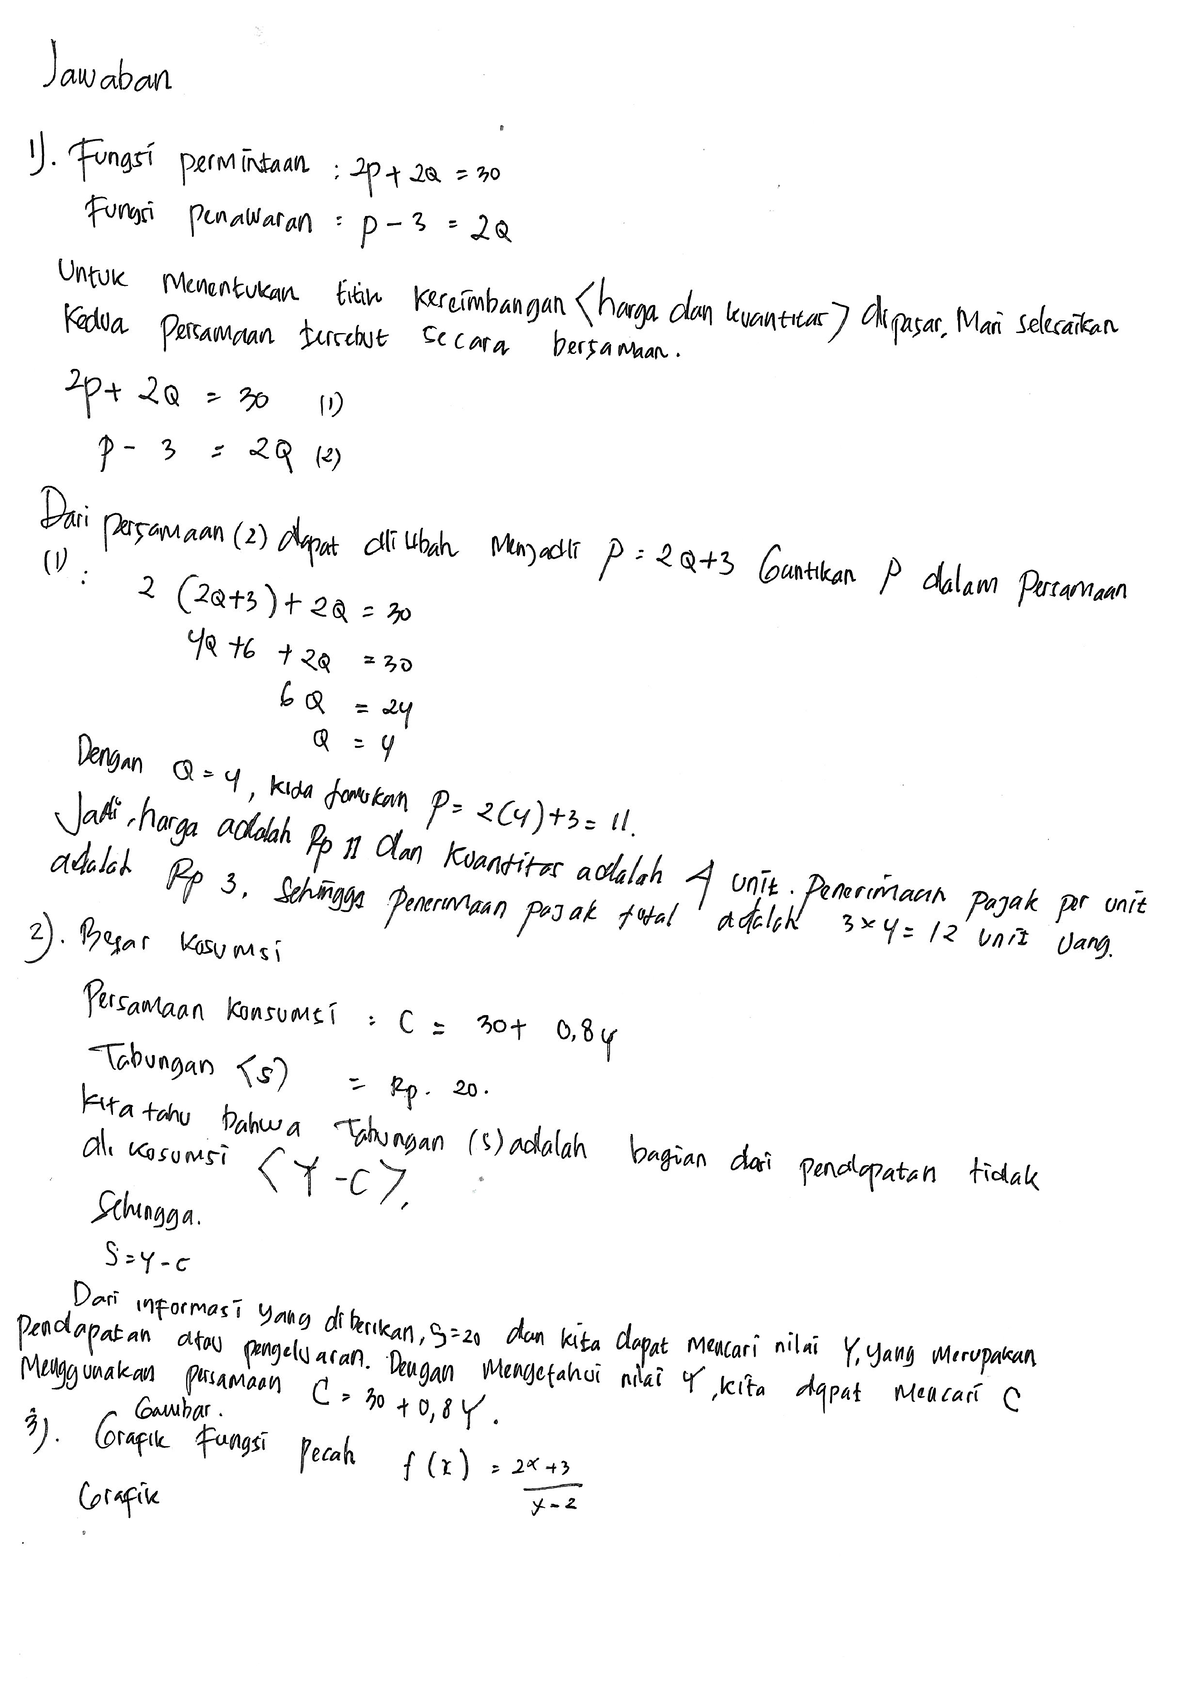 Jawaban
1). Fungsi permintaan : 2p + 2Q = 30
Fungsi penawaran : p - 3 = 2Q
Untuk Menentukan titik kereimbangan (harga dan kuantitas) dipasar, Mari selesaikan
Kedua Persamaan tersebut secara bersamaan.
2p + 2Q = 30 (1)
p - 3 = 2Q (2)
Dari persamaan (2) dapat di ubah Menjadi P = 2Q+3 Gantikan P dalam Persamaan
(1) :
2 (2Q+3) + 2Q = 30
4Q +6 + 2Q = 30
6Q = 24
Q = 4
Dengan Q = 4, kida tomukan P = 2(4)+3 = 11.
Jadi, harga adalah Rp 11 dan Kuantitas adalah 4 unit. Penerimaan pajak per unit
adalah Rp 3, Sehingga Penerimaan pajak total adalah 3 x 4 = 12 Unit Uang.
2). Besar kosumsi
Persamaan Konsumsi : C = 30 + 0,8 y
Tabungan (s) = Rp. 20.
kita tahu bahwa Tabungan (s) adalah bagian dari pendapatan tidak
di kosumsi (Y - C),
Sehingga.
S = Y - C
Dari informasi yang diberikan, S=20 dan kita dapat Mencari nilai Y, yang Merupakan
Pendapatan atau pengeluaran. Dengan Mengetahui nilai Y, kita dapat Mencari C
Menggunakan persamaan C = 30 + 0,8 Y.
Gambar.
3). Grafik Fungsi Pecah f (x) = 2x +3
x - 2
Grafik